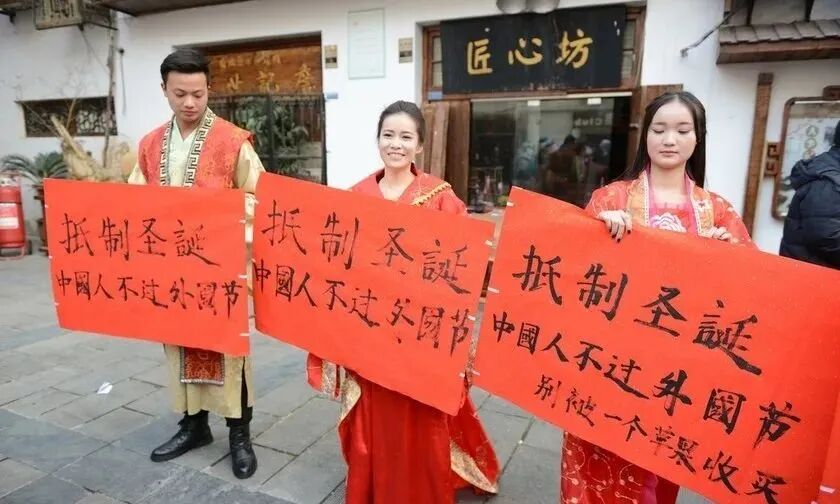 匠心坊
抵制圣誕
中國人不过外國节
抵制圣誕
中國人不过外國节
抵制圣誕
中國人不过外國节
别被一个苹果收买